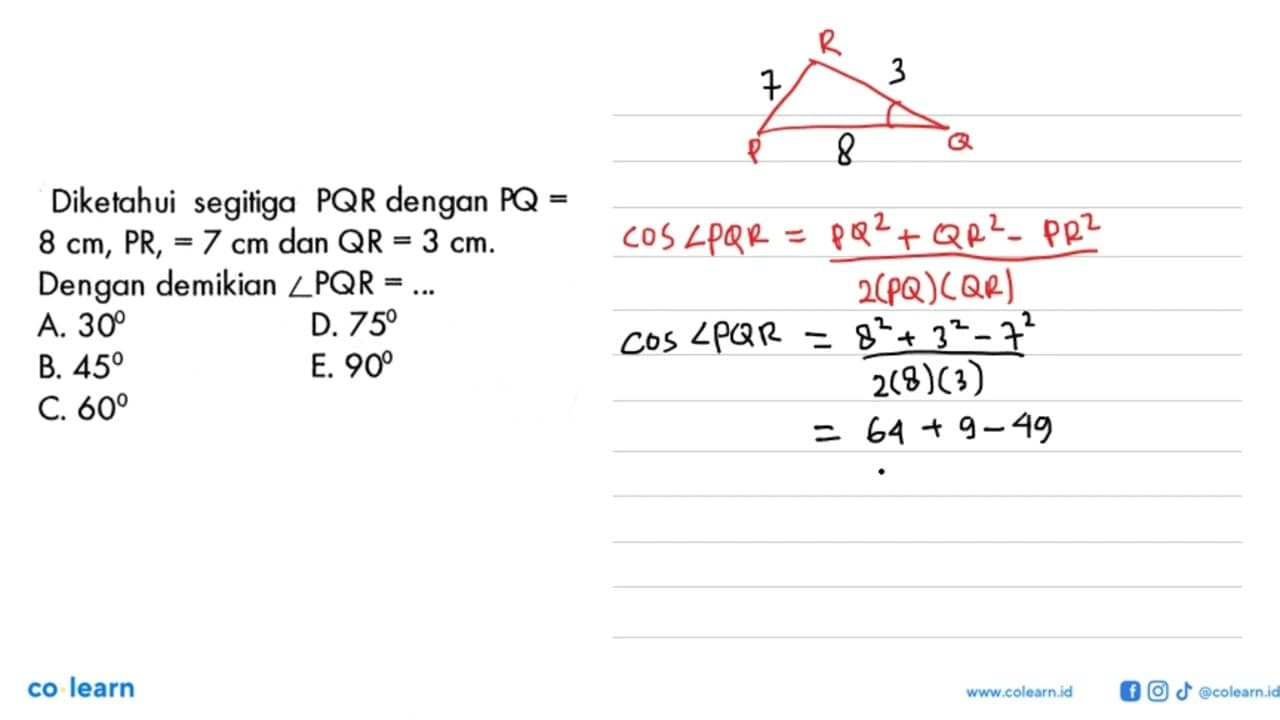 Diketahui segitiga PQR dengan PQ =
8 cm, PR, = 7 cm dan QR = 3 cm.
Dengan demikian ∠PQR = ...
A. 30⁰
D. 75⁰
B. 45⁰
E. 90⁰
C. 60⁰
R
7
3
P
8
Q
cos ∠PQR = PQ² + QR² - PR²
2(PQ)(QR)
cos ∠PQR = 8² + 3² - 7²
2(8)(3)
= 64 + 9 - 49
co learn
www.colearn.id
@colearn.id